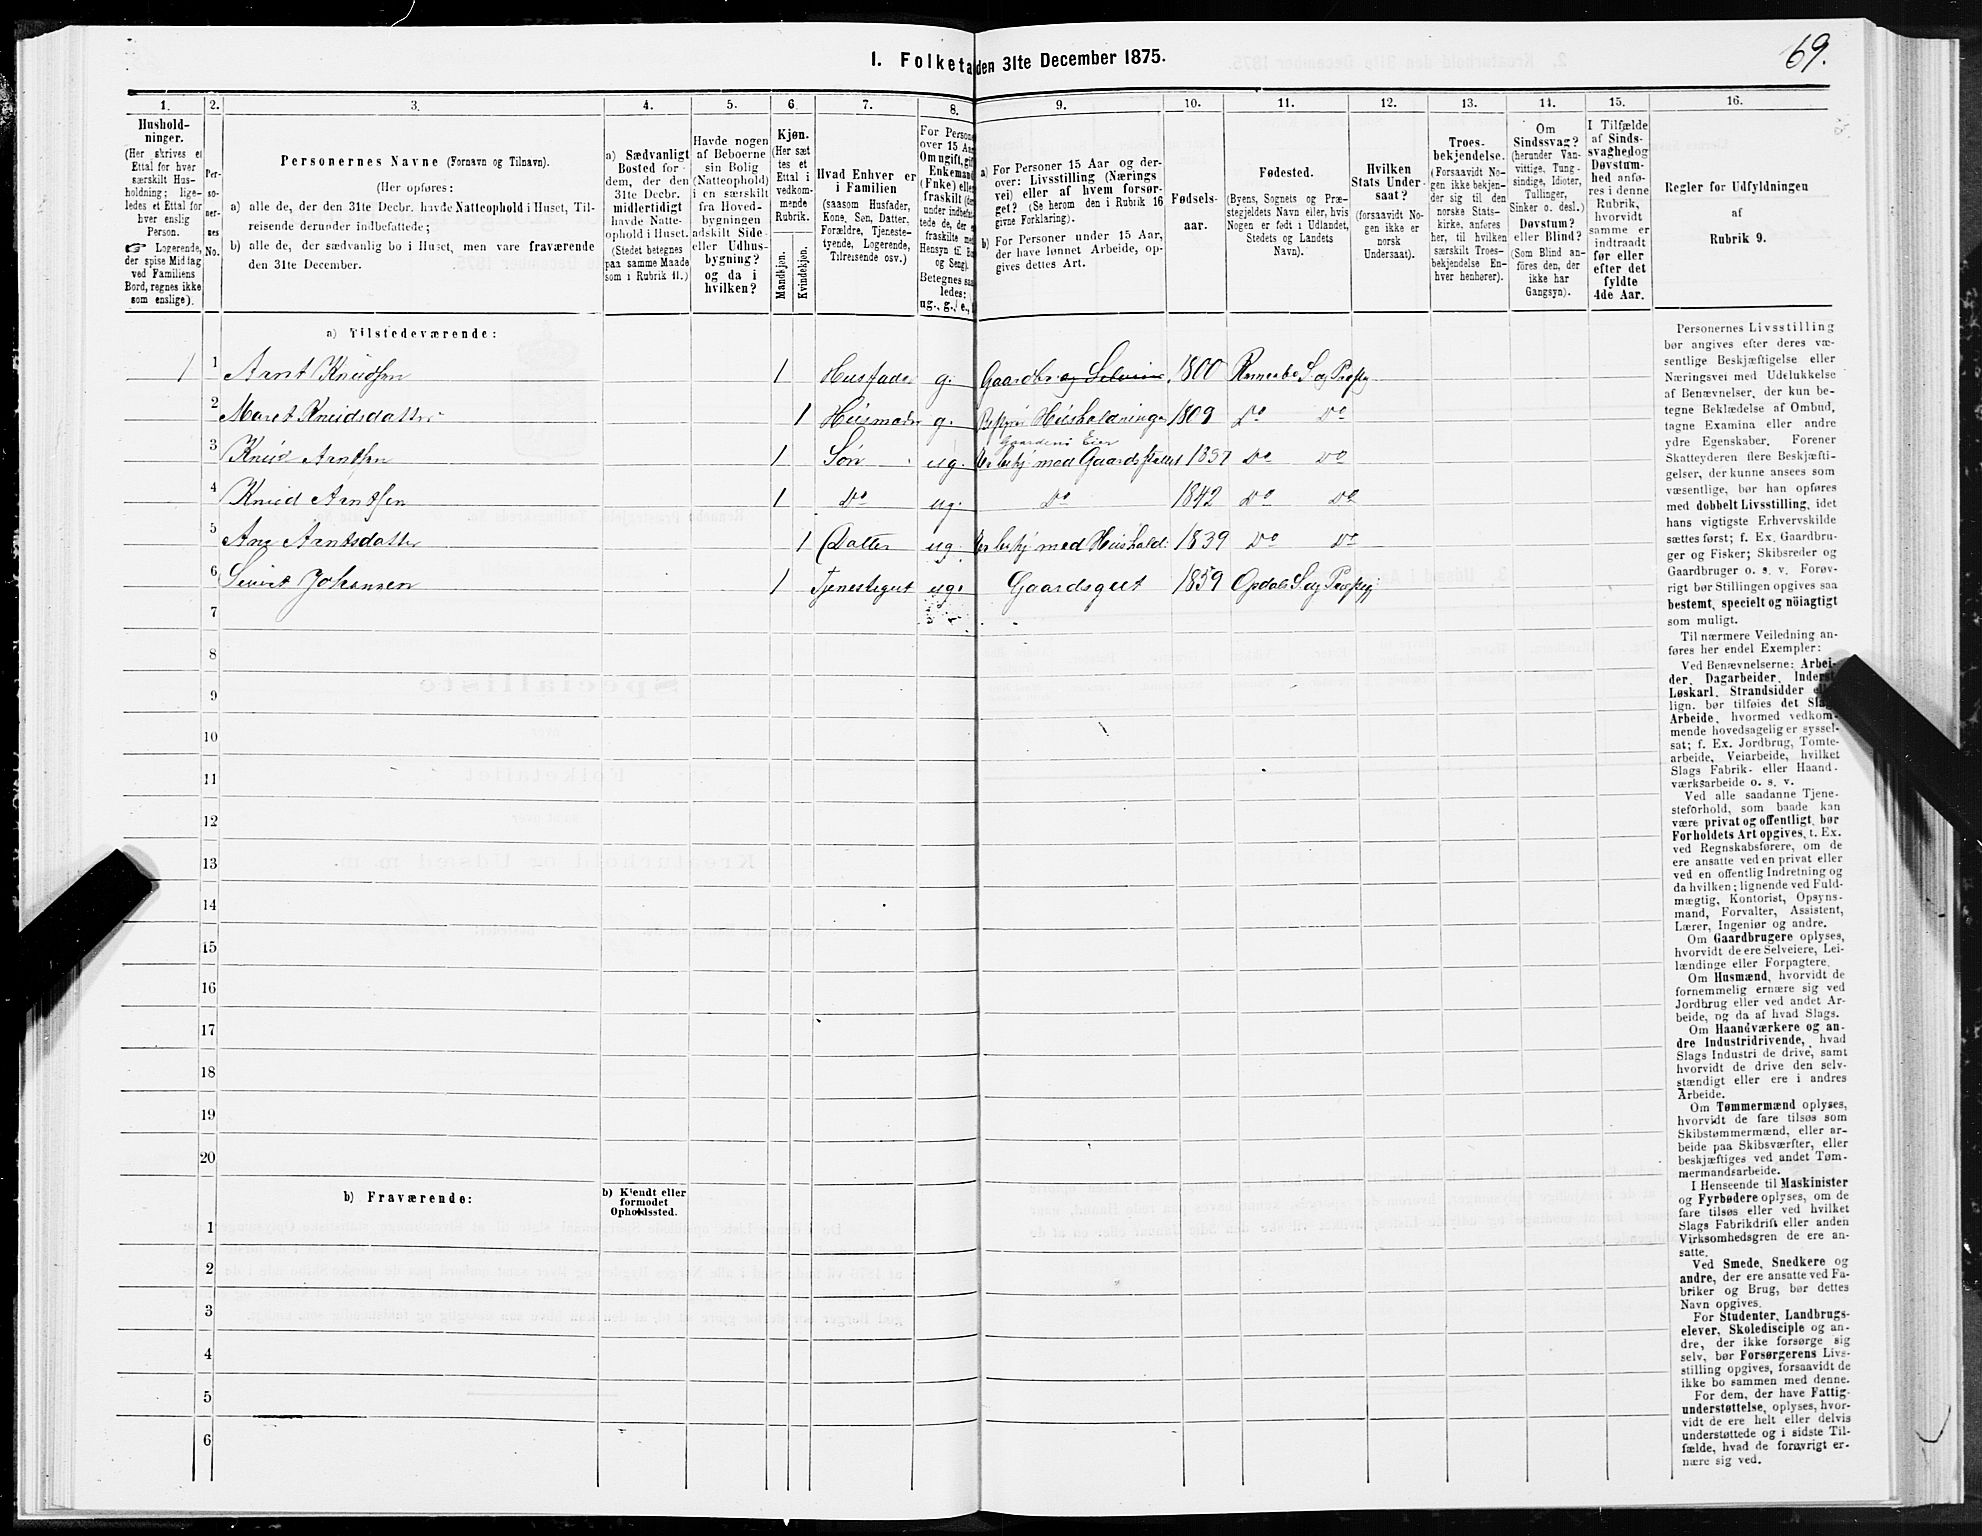 69.
1. Folketa den 31te December 1875.
1. 2. 3. 4. 5. 6. 7. 8. 9. 10. 11. 12. 13. 14. 15. 16.
Hushold-
ninger.
(Her skrives et
Ettal for hver
særskilt Hus-
holdning; lige-
ledes et Ettal for
hver enslig
Person.
☞ Logerende,
der spise Middag
ved Familiens
Bord, regnes ikke
som enslige).
Per-
so-
ner-
nes
No.
Personernes Navne (Fornavn og Tilnavn).
(Her opføres:
a) alle de, der den 31te Decbr. havde Natteophold i Huset, Til-
reisende derunder indbefattede;
b) alle de, der sædvanlig bo i Huset, men vare fraværende
den 31te December.
a) Sædvanligt
Bosted for
dem, der den
31te Decbr.
midlertidigt
havde Natte-
ophold i Huset.
(Stedet betegnes
paa samme Maade
som i Rubrik 11.)
Havde nogen
af Beboerne
sin Bolig
(Natteophold)
i en særskilt
fra Hoved-
bygningen
adskilt Side-
eller Udhus-
bygning?
og da i
hvilken?
Kjøn.
(Her sæt
tes et
Ettal i
vedkom-
mende
Rubrik.
Mandkjøn.
Kvindekjøn.
Hvad Enhver er
i Familien
(saasom Husfader,
Kone, Søn, Datter.
Forældre, Tjeneste-
tyende, Logerende,
Tilreisende osv.)
For Person
over 15 Aa
Om ugift, gif
Enkemand
(Fnke) elle
fraskilt (de
under indbefa
tede de, der e
fraskilte m
Hensyn til B
og Seng).
Betegnes saa
ledes:
ug., g., e.,
a) For Personer 15 Aar og der-
over: Livsstilling (Nærings
vei) eller af hvem forsør-
get? (Se herom den i Rubrik 16
givne Forklaring).
b) For Personer under 15 Aar,
der have lønnet Arbeide, op-
gives dettes Art.
Fødsels-
aar.
Fødested.
(Byens, Sognets og Præ-
stegjeldets Navn eller, hvis
Nogen er født i Udlandet,
Stedets og Landets
Navn).
Hvilken
Stats Under-
saat?
(forsaavidt No-
gen ikke er
norsk
Undersaat).
Troes-
bekjendelse.
(Forsaavidt No-
gen ikke bekjen-
der sig til den
norske Stats-
kirke, anføres
her, til hvilken
særskilt Troes-
bekjendelse En-
hver henhører).
Om
Sindssvag?
(herunder Van-
vittige, Tung-
sindige, Idioter,
Tullinger,
Sinker o. desl.)
Døvstum?
eller Blind?
(Som Blind an-
føres den, der
ikke har
Gangsyn).
I Tilfælde
af Sinds-
svaghed og
Døvstum-
hed anfø-
res i denne
Rubrik,
hvorvidt
samme er
indtraadt
før eller
efter det
fyldte
4de Aar.
Regler for Udfyldningen
af
Rubrik 9.
a) Tilstedeværende:
1 1 Arnt Knudsen 1 Husfader g. Gaardbr. og Selveier 1800 Rennebo S. og Præstg
2 Maret Knudsdatter 1 Husmoder g. Husholdningen 1809 Do Do
Gaardens Eier
3 Knud Arntsen 1 Søn ug. med Gaards 1837 Do Do
4 Knud Arntsen 1 Do ug. Do 1842 Do Do
5 Ane Arntsdatter 1 Datter ug. med Hushold. 1839 Do Do
6 Sivert Johansen 1 Tjenestegut ug. Gaardsgut 1859 Opdals S. og Præstgj
7
8
9
10
11
12
13
14
15
16
17
18
19
20
b) Fraværende:
b) Kjendt eller
formodet
Opholdssted.
1
2
3
4
5
6
Personernes Livsstilling
bør angives efter deres væ-
sentlige Beskjæftigelse eller
Næringsvei med Udelukkelse
af Benævnelser, der kun be-
tegne Beklædelse af Ombud,
tagne Examina eller andre
ydre Egenskaber. Forener
Skatteyderen flere Beskjæfti-
gelser, der kunne ansees som
væsentlige, bør han opføres
med dobbelt Livsstilling, idet
hans vigtigste Erhvervskilde
sættes først; f. Ex. Gaardbru-
ger og Fisker; Skibsreder og
Gaardbruger o. s. v. Forøv-
rigt bør Stillingen opgives saa
bestemt, specielt og nöiagtigt
som muligt.
Til nærmere Veiledning an-
føres her endel Exempler:
Ved Benævnelserne: Arbei-
der, Dagarbeider, Inderst
Løskarl, Strandsidder el
lign. bør tilføies det Slag
Arbeide, hvormed vedkom-
mende hovedsagelig er syssel-
sat; f. Ex. Jordbrug, Tomte-
arbeide, Veiarbeide, hvilket
Slags Fabrik- eller Haand-
værksarbeide o. s. v.
Ved alle saadanne Tjene-
steforhold, som baade kan
være privat og offentligt, bør
Forholdets Art opgives, t. Ex.
ved Regnskabsførere, om de
ere ansatte ved en privat eller
ved en offentlig Indretning og
da hvilken; lignende ved Fuld-
mægtig, Kontorist, Opsyns-
mand, Forvalter, Assistent,
Lærer, Ingeniør og andre.
Om Gaardbrugere oplyses,
hvorvidt de ere Selveiere, Lei-
lændinge eller Forpagtere.
Om Husmænd, hvorvidt de
fornemmelig ernære sig ved
Jordbrug eller ved andet Ar-
beide, og da af hvad Slags.
Om Haandværkere og an-
dre Industridrivende, hvad
Slags Industri de drive, samt
hvorvidt de drive den selv-
stændigt eller ere i andres
Arbeide.
Om Tømmermænd oplyses,
hvorvidt de fare tilsøs som
Skibstømmermænd, eller ar-
beide paa Skibsværfter, eller
beskjæftiges ved andet Tøm-
mermandsarbeide.
I Henseende til Maskinister
og Fyrbødere oplyses, om de
fare tilsøs eller ved hvilket
Slags Fabrikdrift eller anden
Virksomhedsgren de ere an-
satte.
Ved Smede, Snedkere og
andre, der ere ansatte ved Fa-
briker og Brug, bør dettes
Navn opgives.
For Studenter, Landbrugs-
elever, Skoledisciple og an-
dre, der ikke forsørge sig
selv, bør Forsørgerens Livs-
stilling opgives, forsaavidt de
ikke bo sammen med denne.
For dem, der have Fattig-
understøttelse, oplyses, hvor-
vidt de ere helt eller delvis
understøttede og i sidste Til-
fælde, hvad de forøvrigt er-
nære sig ved.